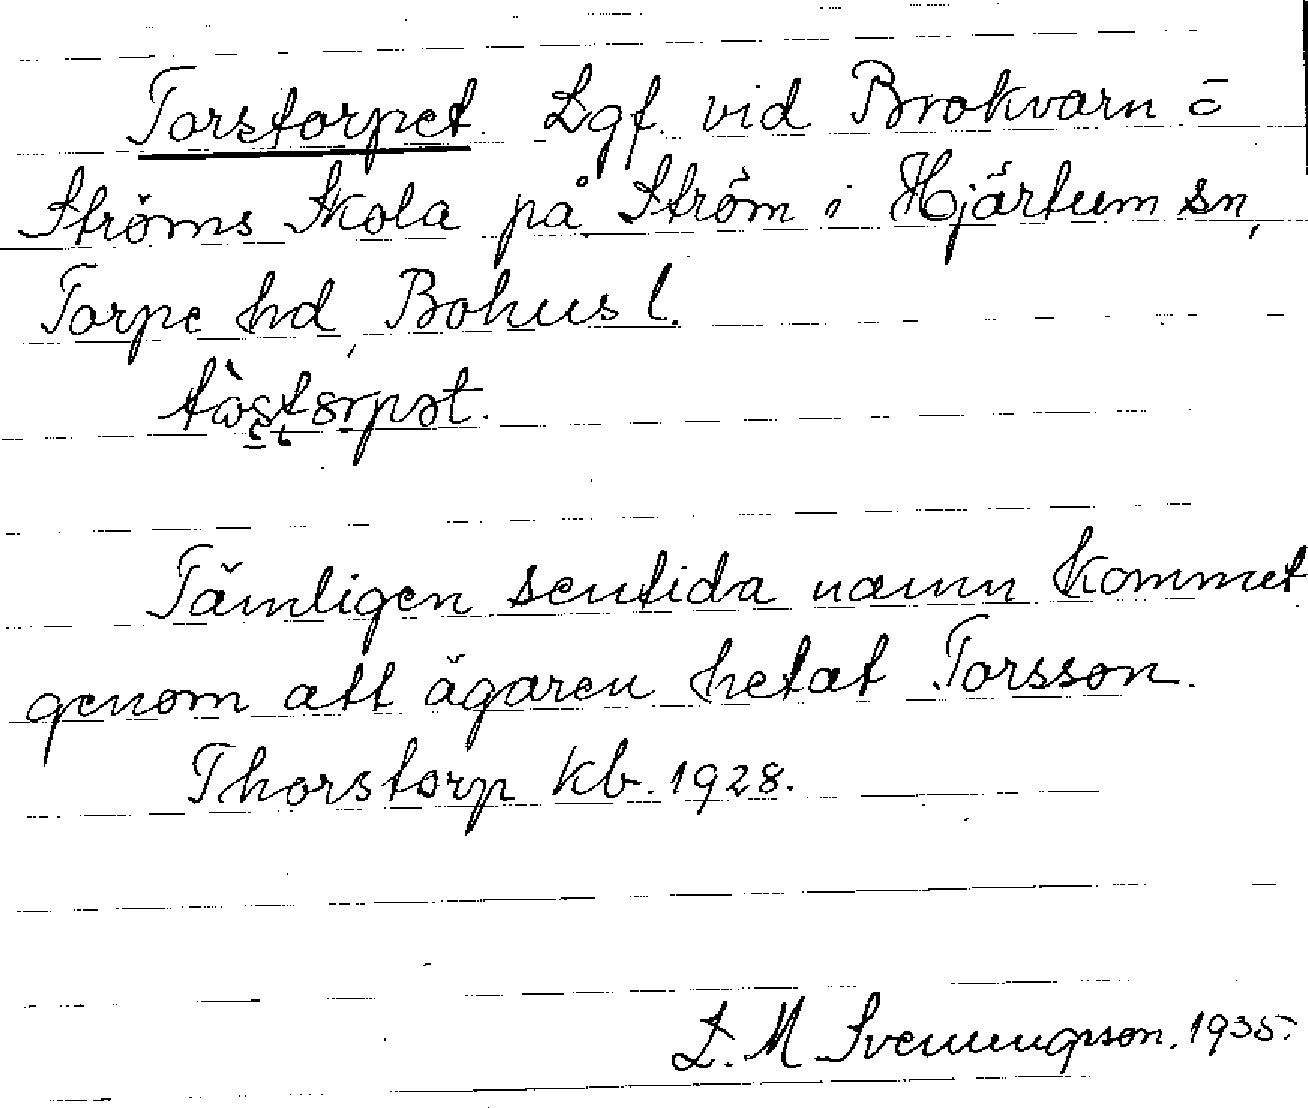 Torstorpet. Lgf. vid Brokvarn o
Ströms Skola på Ström i Hjärtum sn,
Torpe hd, Bohusl.
Tämligen sentida namn kommet
genom att ägaren hetat Torsson.
Thorstorp kb. 1928.
L. M. Svenungsson. 1935.